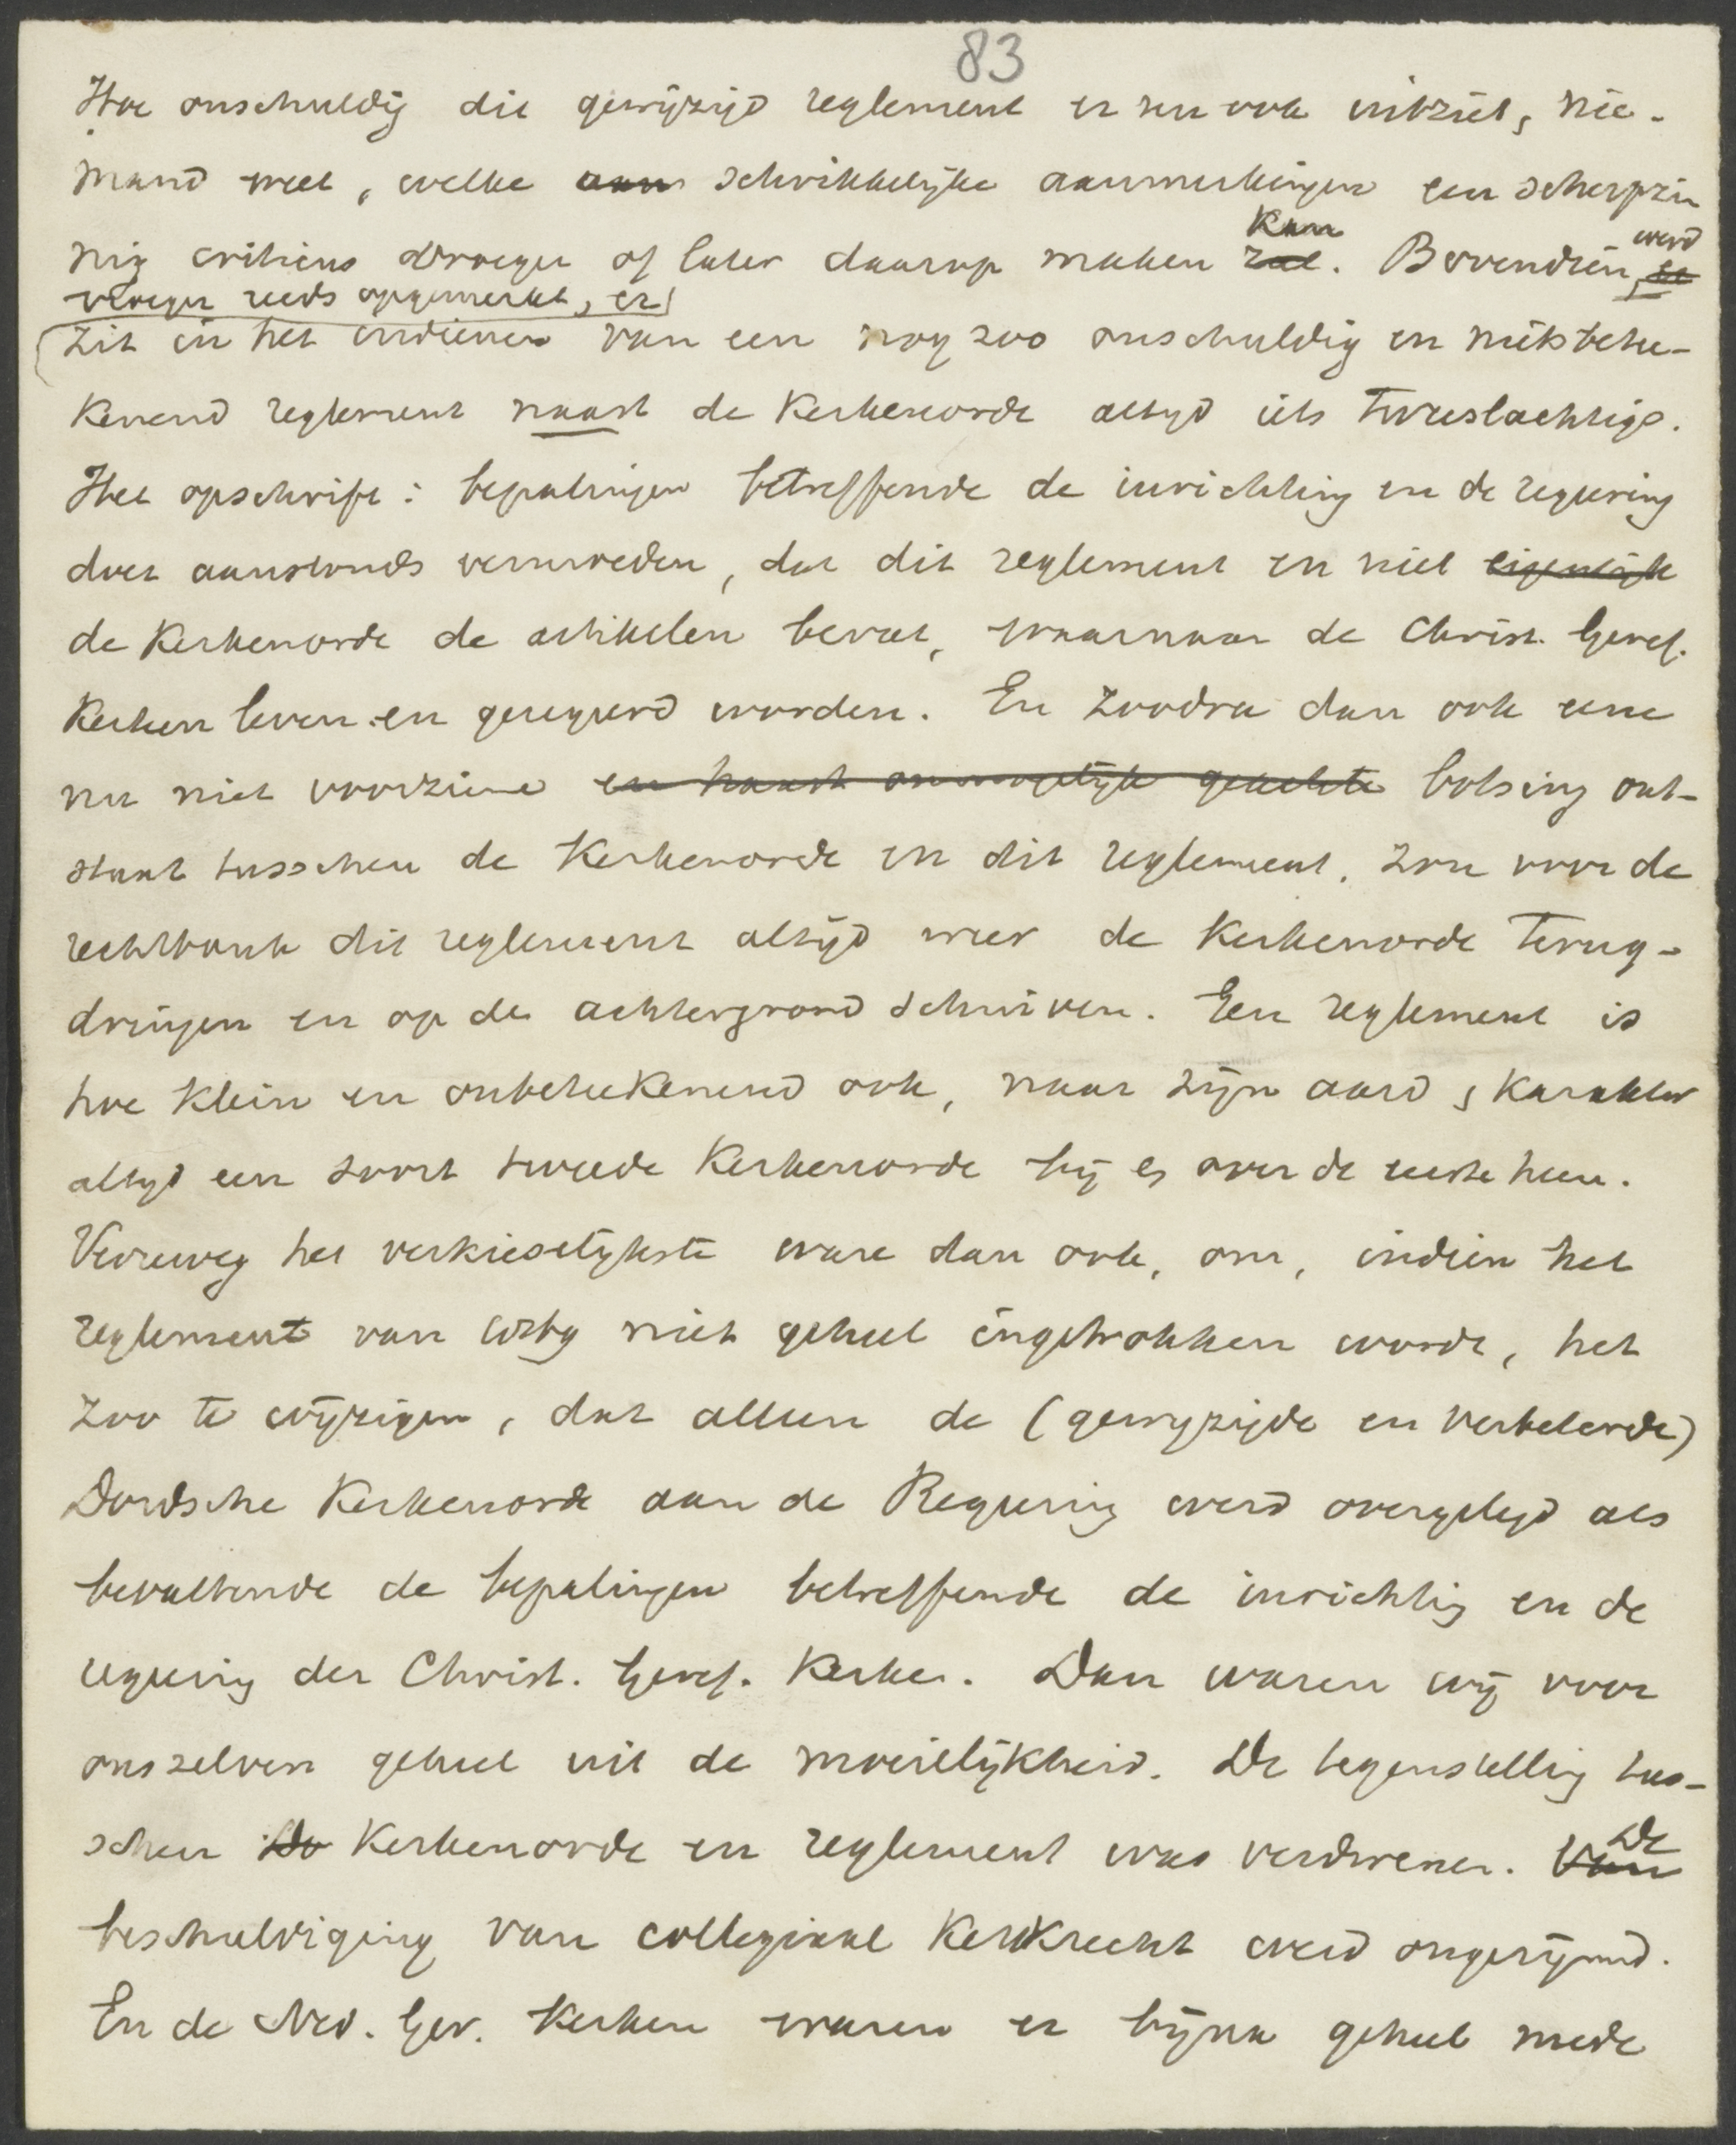 83
Hoe onschuldig dit gewijzigd reglement er nu ook uitziet, nie-
mand weet, welke aan schrikkelijke aanmerkingen een scherpzin
nig criticus vroeger of later daarop maken zal. kan Bovendien, er werd
vroeger reeds opgemerkt, er
zit in het indienen van een nog zoo onschuldig en nietsbetee-
kenend reglement naast de Kerkenorde altijd iets tweeslachtigs.
Het opschrift: bepalingen betreffende de inrichting en de regeering
doet aanstonds vermoeden, dat dit reglement en niet eigenlijk
de Kerkenorde de artikelen bevat, waarnaar de Christ. Geref.
Kerken leven en geregeerd worden. En zoodra dan ook eene
nu niet voorziene en haast onmogelijk geachte botsing ont-
staat tusschen de Kerkenorde en dit reglement, zou voor de
rechtbank dit reglement altijd weer de Kerkenorde terug-
dringen en op de achtergrond schuiven. Een reglement is
hoe klein en onbeteekenend ook, naar zijn aard & karakter
altijd een soort tweede Kerkenorde bij en over de eerste heen.
Verreweg het verkieselijkste ware dan ook, om, indien het
reglement van 1869 niet geheel ingetrokken worde, het
zoo te wijzigen, dat alleen de (gewijzigde en verbeterde)
Dordsche Kerkenorde aan de Regeering werd overgelegd als
bevattende de bepalingen betreffende de inrichting en de
regeering der Christ. Geref. Kerken. Dan waren wij voor
onszelven geheel uit de moeilijkheid. De tegenstelling tus-
schen Do Kerkenorde en reglement was verdwenen. Van De
beschuldiging van collegiaal Kerkrecht werd ongerijmd.
En de Ned. Ger. Kerken waren er bijna geheel mede